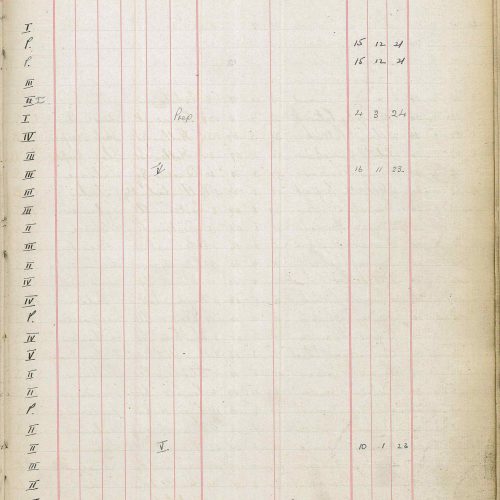 I
P. 15 12 21
P. 15 12 21
III
II
I Prep. 4 3 24
IV
III
III V 16 11 23
III
III
II
III
II
IV
IV
P.
IV
V
II
II
P.
II
II V 10 1 23
III
II